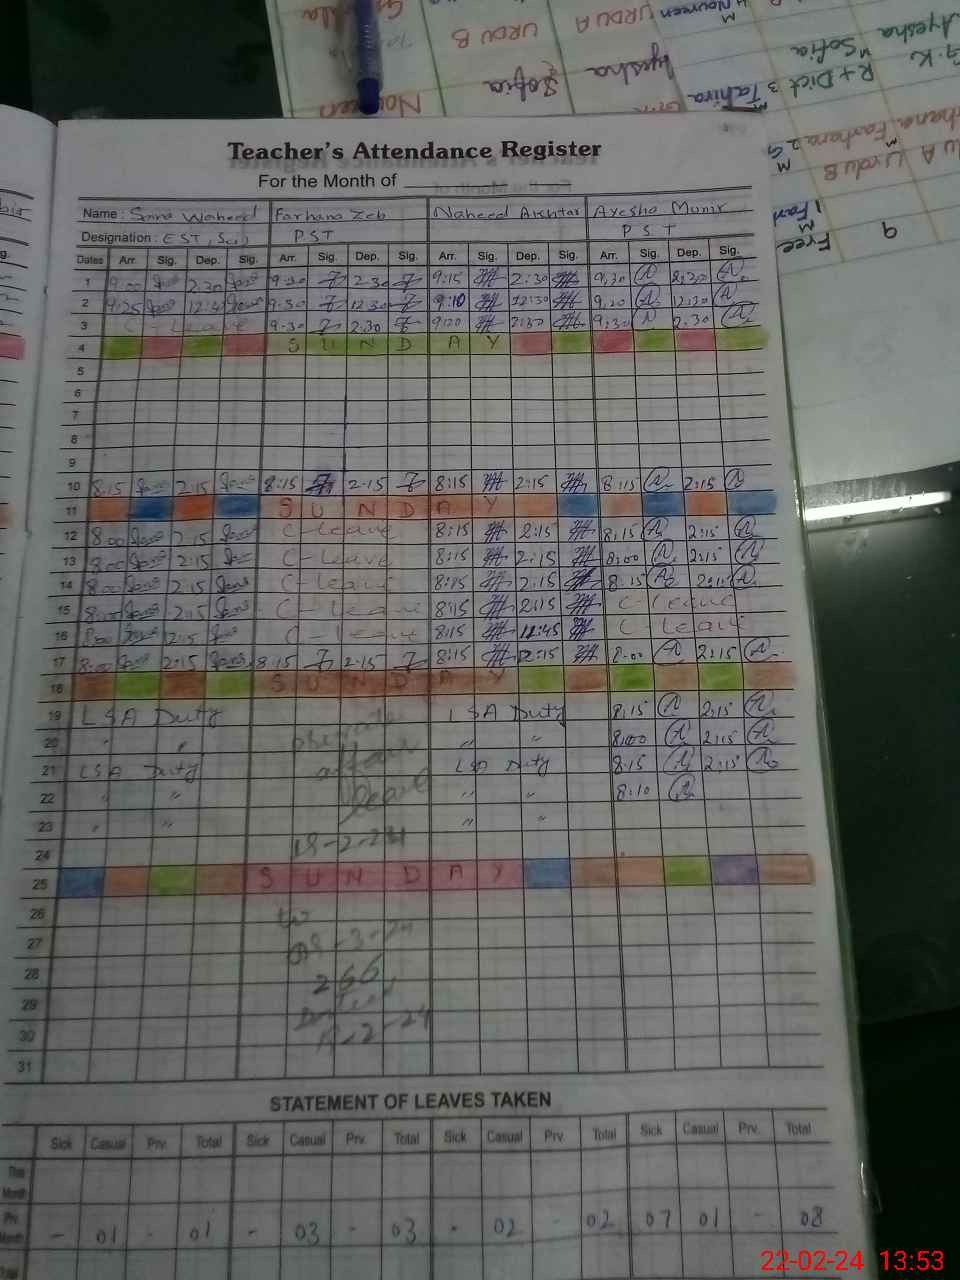 Teacher's Attendance Register
For the Month of
Name : Waheed Farhana Zeb Naheed Akhtar Ayesha Munir
Designation : EST, PST PST
Dates Arr. Sig. Dep. Sig. Arr. Sig. Dep. Sig. Arr. Sig. Dep. Sig. Arr. Sig. Dep. Sig.
1 9:00 2.30 9-30 2-30 9:15 2:30 9,30 2:30
2 9:25 9-30 12.30 9:10 12:30 9,20 12:30
3 C-Leave 9-30 2.30 9:00 2:30 9:30 2.30
4 SUNDAY
5
6
7
8
9
10 8:15 2:15 8:15 2-15 8:15 2:15 8:15 2:15
11 SUNDAY
12 8:00 2:15 C-leave 8:15 2:15 8:15 2:15
13 8:00 2:15 C-leave 8:15 2:15 8:00 2:15
14 8:00 2:15 C-leave 8:15 2:15 8:15 2:15
15 8:00 2:15 C-leave 8:15 2:15 C-leave
16 8:00 2:15 C-leave 8:15 12:45 C-leave
17 8:00 2:15 8.15 2-15 8:15 2:15 8-00 2:15
18 SUNDAY
19 LSA Duty LSA Duty 8:15 2:15
20 " " " " 8:00 2:15
21 LSA Duty LSA Duty 8:15 2:15
22 " " leave " " 8:10
23 " " 19-2-24 " "
24
25 SUNDAY
26
27 08-3-24
28 266
29
30 -2-24
31
STATEMENT OF LEAVES TAKEN
Sick Casual Prv. Total Sick Casual Prv. Total Sick Casual Prv. Total Sick Casual Prv. Total
This Month
Prv. Month - 01 - 01 - 03 - 03 - 02 - 02 07 01 - 08
Total
22-02-24 13:53
URDU B
URDU A
Noureen
Sofia
Ayesha
Tahira
R + Dict 3
Sofia
G.K.
Ayesha
Urdu B
Farhana
Free
9